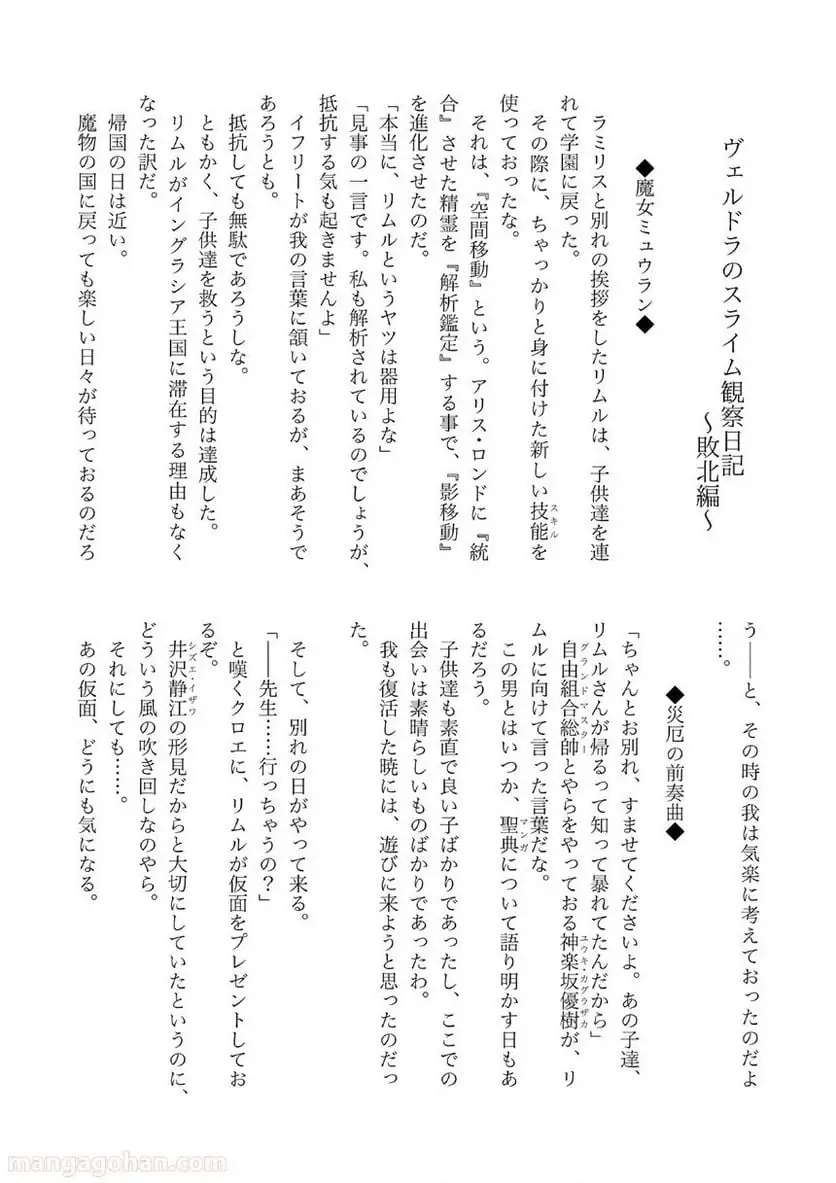 ヴェルドラのスライム観察日記
〜敗北編〜
◆魔女ミュウラン◆
ラミリスと別れの挨拶をしたリムルは、子供達を連
れて学園に戻った。
その際に、ちゃっかりと身に付けた新しい技能を
スキル
使っておったな。
それは、『空間移動』という。アリス・ロンドに『統
合』させた精霊を『解析鑑定』する事で、『影移動』
を進化させたのだ。
「本当に、リムルというヤツは器用よな」
「見事の一言です。私も解析されているのでしょうが、
抵抗する気も起きませんよ」
イフリートが我の言葉に頷いておるが、まあそうで
あろうとも。
抵抗しても無駄であろうしな。
ともかく、子供達を救うという目的は達成した。
リムルがイングラシア王国に滞在する理由もなく
なった訳だ。
帰国の日は近い。
魔物の国に戻っても楽しい日々が待っておるのだろ
う――と、その時の我は気楽に考えておったのだよ
……。
◆災厄の前奏曲◆
「ちゃんとお別れ、すませてくださいよ。あの子達、
リムルさんが帰るって知って暴れてたんだから」
自由組合総帥とやらをやっておる神楽坂優樹が、リ
グランドマスター
ユウキ・カグラザカ
ムルに向けて言った言葉だな。
この男とはいつか、聖典について語り明かす日もあ
マンガ
るだろう。
子供達も素直で良い子ばかりであったし、ここでの
出会いは素晴らしいものばかりであったわ。
我も復活した暁には、遊びに来ようと思ったのだっ
た。
そして、別れの日がやって来る。
「――先生……行っちゃうの？」
と嘆くクロエに、リムルが仮面をプレゼントしてお
るぞ。
井沢静江の形見だからと大切にしていたというのに、
シズエ・イザワ
どういう風の吹き回しなのやら。
それにしても……。
あの仮面、どうにも気になる。
mangagohan.com